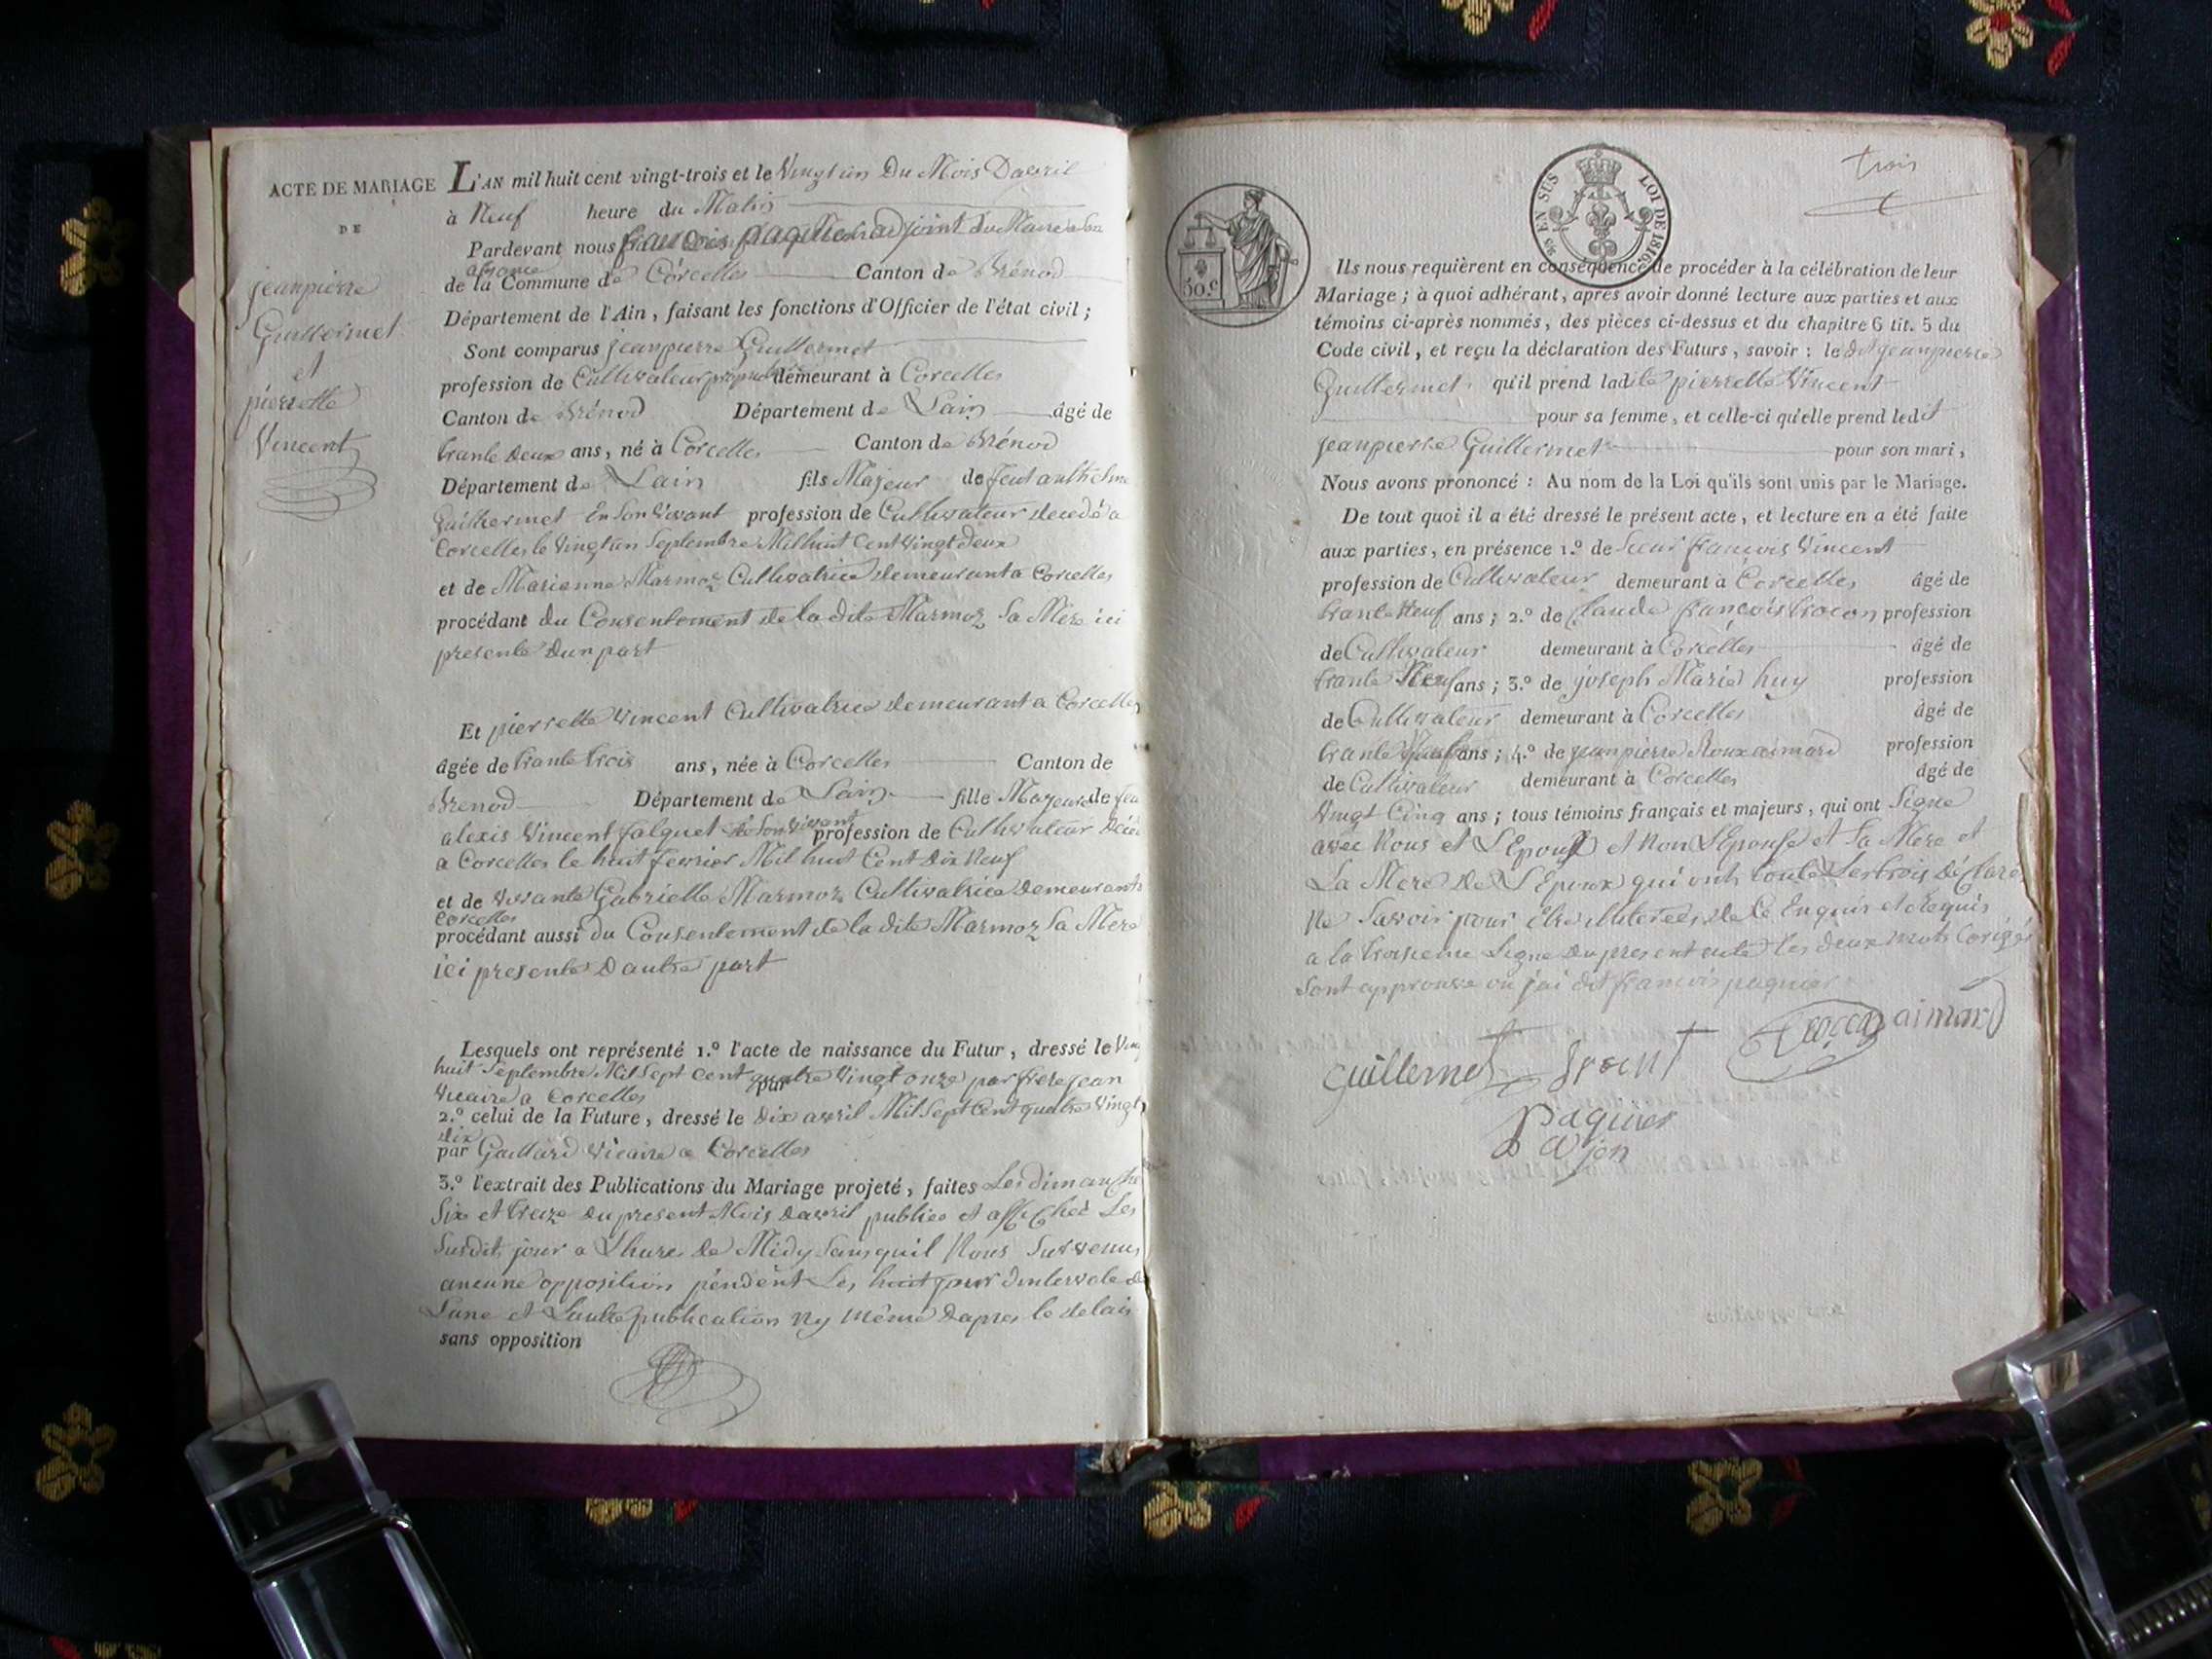 ACTE DE MARIAGE
DE
jeanpierre
Guillermet
et
pierrette
Vincent
L'AN mil huit cent vingt-trois et le Vingt un Du Mois Davril
à Neuf heure du Matin
Pardevant nous francois paquier adjoint du Maire a Son
absence
de la Commune de Corcelles Canton de Brénod
Département de l'Ain, faisant les fonctions d'Officier de l'état civil;
Sont comparus jeanpierre Guillermet
profession de Cultivateur demeurant à Corcelles
Canton de Brénod Département de Lain âgé de
trante deux ans, né à Corcelles Canton de Brénod
Département de Lain fils Majeur de feut anthelme
Guillermet En Son Vivant profession de Cultivateur decedé a
Corcelles le Vingt un Septembre Mil huit Cent Vingt deux
et de Marianne Marmoz Cultivatrice demeurant a Corcelles
procédant du Consentement de la dite Marmoz Sa Mere ici
presente Dun part
Et pierrette Vincent Cultivatrice demeurant a Corcelles
âgée de trante trois ans, née à Corcelles Canton de
Brenod Département de Lain fille Majeure de feu
alexis Vincent falquet En Son Vivant profession de Cultivateur Décédé
a Corcelles le huit fevrier Mil huit Cent Dix Neuf
et de vivante Gabrielle Marmoz Cultivatrice Demeurant a
Corcelles
procédant aussi du Consentement de la dite Marmoz Sa Mere
ici presente D autre part
Lesquels ont représenté 1.º l'acte de naissance du Futur, dressé le Vingt
huit Septembre Mil Sept Cent quatre Vingt onze par frere jean
par
Vicaire a Corcelles
2.º celui de la Future, dressé le Dix avril Mil Sept Cent quatre Vingt
dix
par Gaillard Vicaire a Corcelles
3.º l'extrait des Publications du Mariage projeté, faites Les dimanche
Six et treize du present Mois davril publiee et affichée Les
Susdit jour a Lhure de Midy Sans quil Nous Survenus
aucune opposition péndent Les huit jour dintervale de
Lune et Lautre publication Ny même Dapres le delais
sans opposition
50.C
EN SUS
LOI DE 1816
trois
Ils nous requièrent en conséquence de procéder à la célébration de leur
Mariage; à quoi adhérant, après avoir donné lecture aux parties et aux
témoins ci-après nommés, des pièces ci-dessus et du chapitre 6 tit. 5 du
Code civil, et reçu la déclaration des Futurs, savoir: le dit jeanpierre
Guillermet qu'il prend ladite pierrette Vincent
pour sa femme, et celle-ci qu'elle prend ledit
jeanpierre Guillermet pour son mari,
Nous avons prononcé: Au nom de la Loi qu'ils sont unis par le Mariage.
De tout quoi il a été dressé le présent acte, et lecture en a été faite
aux parties, en présence 1.º de Sieur francois Vincent
profession de Cultivateur demeurant à Corcelles âgé de
trante Neuf ans; 2.º de Claude françois trocon profession
de Cultivateur demeurant à Corcelles âgé de
trante Neuf ans; 3.º de joseph Marie huy profession
de Cultivateur demeurant à Corcelles âgé de
trante ans; 4.º de jeanpierre Roux aimard profession
de Cultivateur demeurant à Corcelles âgé de
Vingt Cinq ans; tous témoins français et majeurs, qui ont Signe
avec Nous et LEpoux et Non LEpouse et Sa Mere et
La Mere De LEpoux qui ont toute Les trois Déclaré
Ne Savoir pour Etre illiterées de Ce Enquis et Requis
a la troisieme Ligne du present acte les deux mots Corigés
Sont approuve ou jai dit francois paquier
Guillermet trocon aimard
paquier
adjon